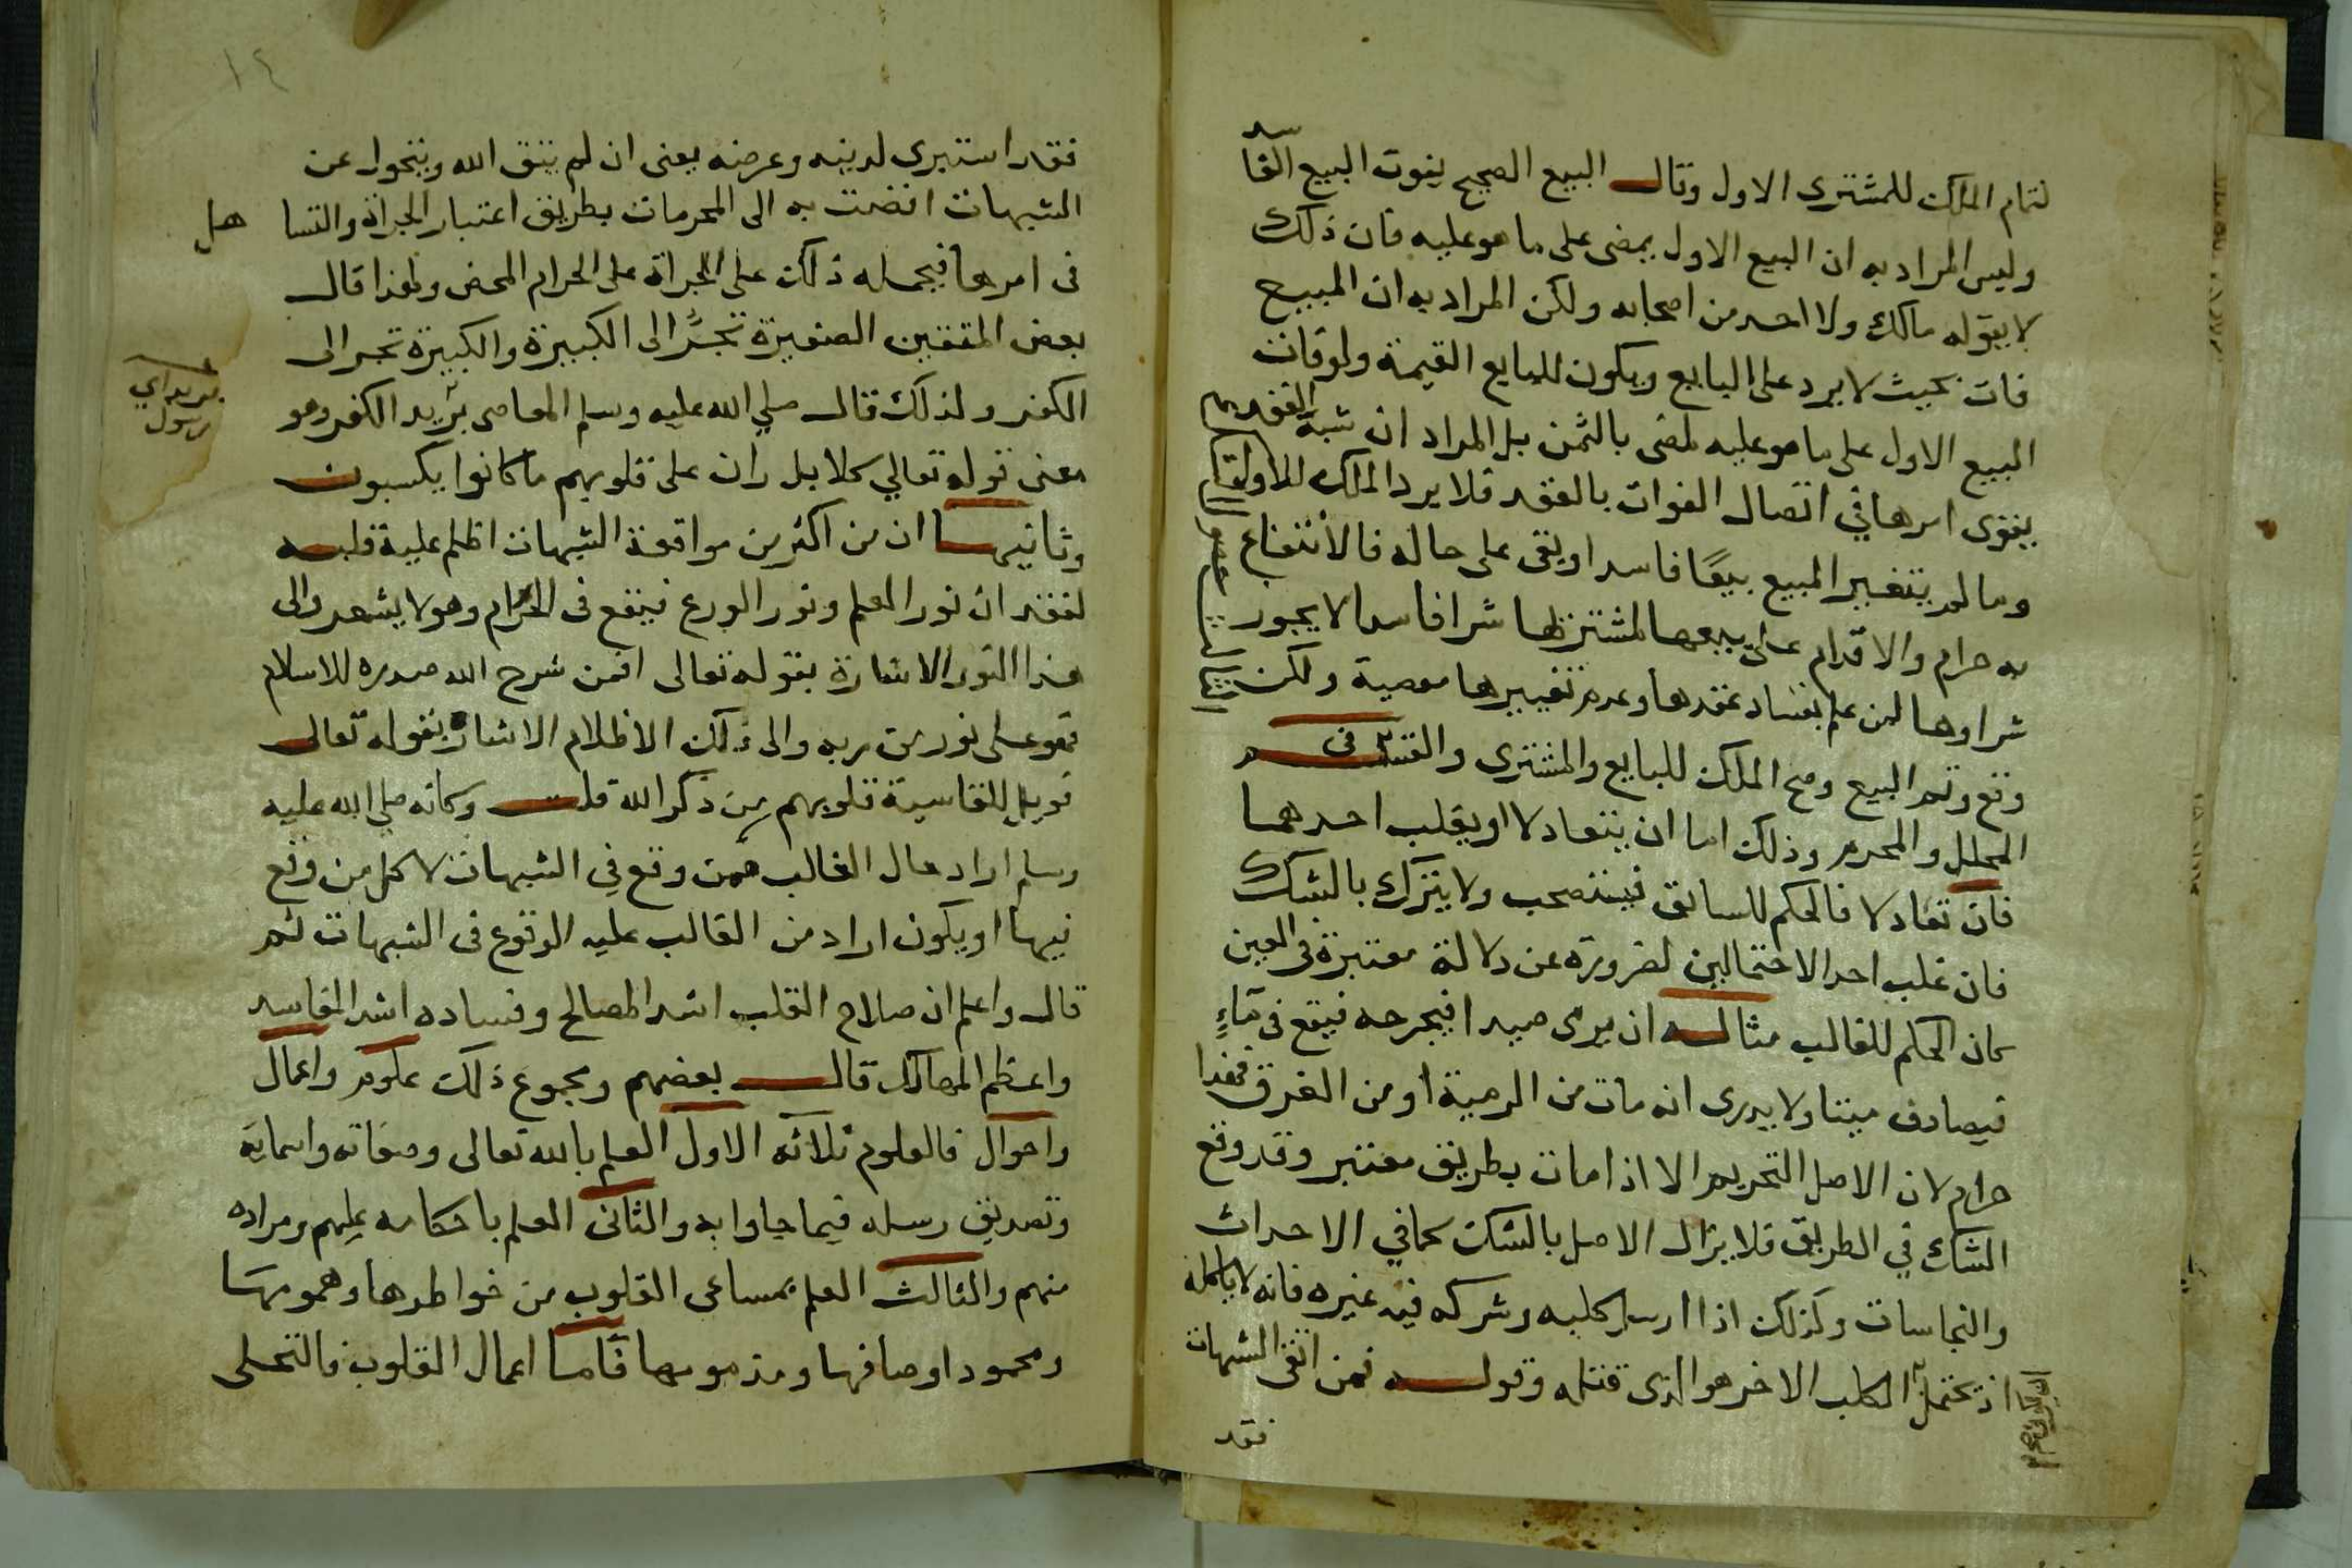 لتمام الملك للمشترى الاول وقال البيع الصحيح يفوت البيع الفاسد
وليس المراد به ان البيع الاول يمضى على ما هو عليه فان ذلك
لا يقوله مالك ولا احد من اصحابه ولكن المراد به ان المبيع
فات بحيث لا يرد على البايع ويكون للبايع القيمة ولو فات
البيع الاول على ما هو عليه لمضى بالثمن بل المراد ان شبهة العقد
يقوى امرها في اتصال الفوات بالعقد فلا يرد الملك الاول
وما لم يتغير المبيع بيعًا فاسدا وبقى على حاله فالانتفاع
به حرام والاقدام على بيعها لمشتريها شرا فاسدا لا يجوز
شراوها لمن علم بفساد عقدها وعدم تغييرها معصية ولكن
وقع وتم البيع وصح الملك للبايع والمشترى والقسم فى
المحلل والمحرم وذلك اما ان يتعادلا او يغلب احدهما
فان تعادلا فالحكم للسابق فيستصحب ولا يترك بالشك
فان غلب احد الاحتمالين لضرورة عن دلالة معتبرة فى العين
كان الحكم للغالب مثاله ان يرمى صيدا فيجرحه فيقع فى مآءٍ
فيصادف ميتا ولا يدرى انه مات من الرمية او من الغرق فهذا
حرام لان الاصل التحريم الا اذا مات بطريق معتبر وقد وقع
الشك في الطريق فلا يزال الاصل بالشك كما في الاحداث
والنجاسات وكذلك اذا ارسل كلبه وشركه فيه غيره فانه لا ياكله
اذ يحتمل ان الكلب الاخر هو الذى قتله وقوله فمن اتقى الشبهات
فقد
١٤
فقد استبرى لدينه وعرضه يعنى ان لم يتق الله ويتحول عن
الشبهات افضت به الى المحرمات بطريق اعتبار الجراة والتسا هل
فى امرها فيحمله ذلك على الجراة على الحرام المحض ولهذا قال
بعض المتقين الصغيرة تجرُّ الى الكبيرة والكبيرة تجر الى
الكفر ولذلك قال صلي الله عليه وسلم المعاصى بريد الكفر وهو
بريد اي
رسول
معنى قوله تعالي كلا بل ران على قلوبهم ما كانوا يكسبون
وثانيهما ان من اكثر من مواقعة الشبهات اظلم عليه قلبه
لفقدان نور العلم ونور الورع فيقع فى الحرام وهو لا يشعر والى
هذا النور الاشارة بقوله تعالى افمن شرح الله صدره للاسلام
فهو على نور من ربه والى ذلك الاظلام الاشارة بقوله تعالى
فويل للقاسية قلوبهم من ذكر الله قلت وكانه صلى الله عليه
وسلم اراد حال الغالب ممن وقع في الشبهات لا كل من وقع
فيها او يكون اراد من الغالب عليه الوقوع فى الشبهات ثم
قال واعلم ان صلاح القلب اشد المصالح وفساده اشد المفاسد
واعظم المهالك قال بعضهم ومجموع ذلك علوم واعمال
واحوال فالعلوم ثلاثه الاول العلم بالله تعالى وصفاته واسمايه
وتصديق رسله فيما جاوا به والثانى العلم باحكامه عليهم ومراده
منهم والثالث العلم بمساعى القلوب من خواطرها وهمومها
ومحمود اوصافها ومذمومها فاما اعمال القلوب فالتحلى